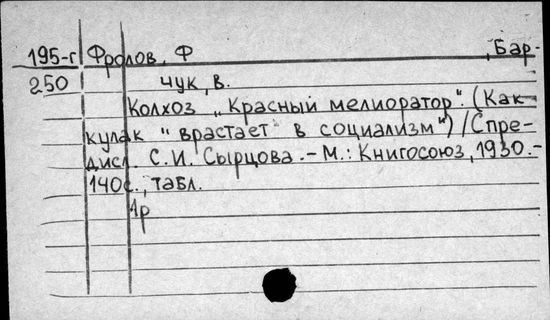 195-г Фролов, Ф , Бар-
250 чук, В.
Колхоз „Красный мелиоратор". (Как
кулак "врастает" в социализм") / Спре-
дисл. С.И. Сырцова. - М.: Книгосоюз, 1930. -
140с., табл.
1р